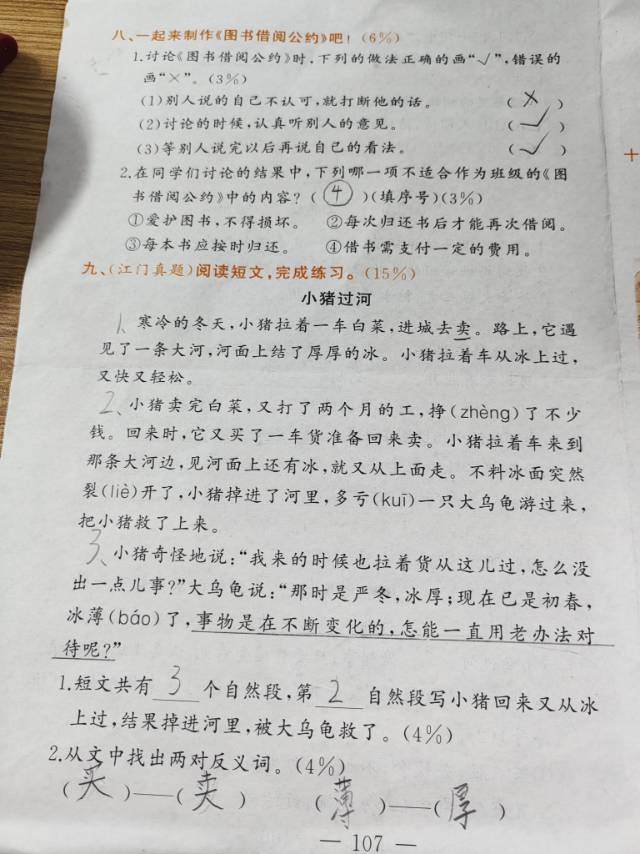 八、一起来制作《图书借阅公约》吧！(6%)
1.讨论《图书借阅公约》时,下列的做法正确的画“√”,错误的
画“×”。(3%)
(1)别人说的自己不认可,就打断他的话。 (×)
(2)讨论的时候,认真听别人的意见。 (√)
(3)等别人说完以后再说自己的看法。 (√)
2.在同学们讨论的结果中,下列哪一项不适合作为班级的《图
书借阅公约》中的内容？(④)(填序号)(3%)
①爱护图书,不得损坏。 ②每次归还书后才能再次借阅。
③每本书应按时归还。 ④借书需支付一定的费用。
九、(江门真题)阅读短文,完成练习。(15%)
小猪过河
1、寒冷的冬天,小猪拉着一车白菜,进城去卖。路上,它遇
见了一条大河,河面上结了厚厚的冰。小猪拉着车从冰上过,
又快又轻松。
2、小猪卖完白菜,又打了两个月的工,挣(zhèng)了不少
钱。回来时,它又买了一车货准备回来卖。小猪拉着车来到
那条大河边,见河面上还有冰,就又从上面走。不料冰面突然
裂(liè)开了,小猪掉进了河里,多亏(kuī)一只大乌龟游过来,
把小猪救了上来。
3、小猪奇怪地说:“我来的时候也拉着货从这儿过,怎么没
出一点儿事?”大乌龟说:“那时是严冬,冰厚;现在已是初春,
冰薄(báo)了,事物是在不断变化的,怎能一直用老办法对
待呢?”
1.短文共有 3 个自然段,第 2 自然段写小猪回来又从冰
上过,结果掉进河里,被大乌龟救了。(4%)
2.从文中找出两对反义词。(4%)
(买)——(卖) (薄)——(厚)
— 107 —